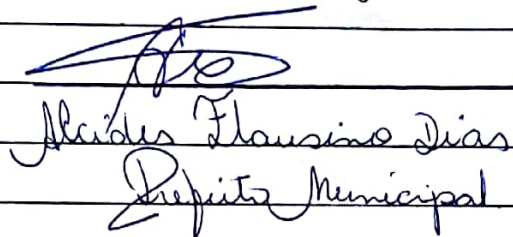 Alcides Flausino Dias
Prefeito Municipal